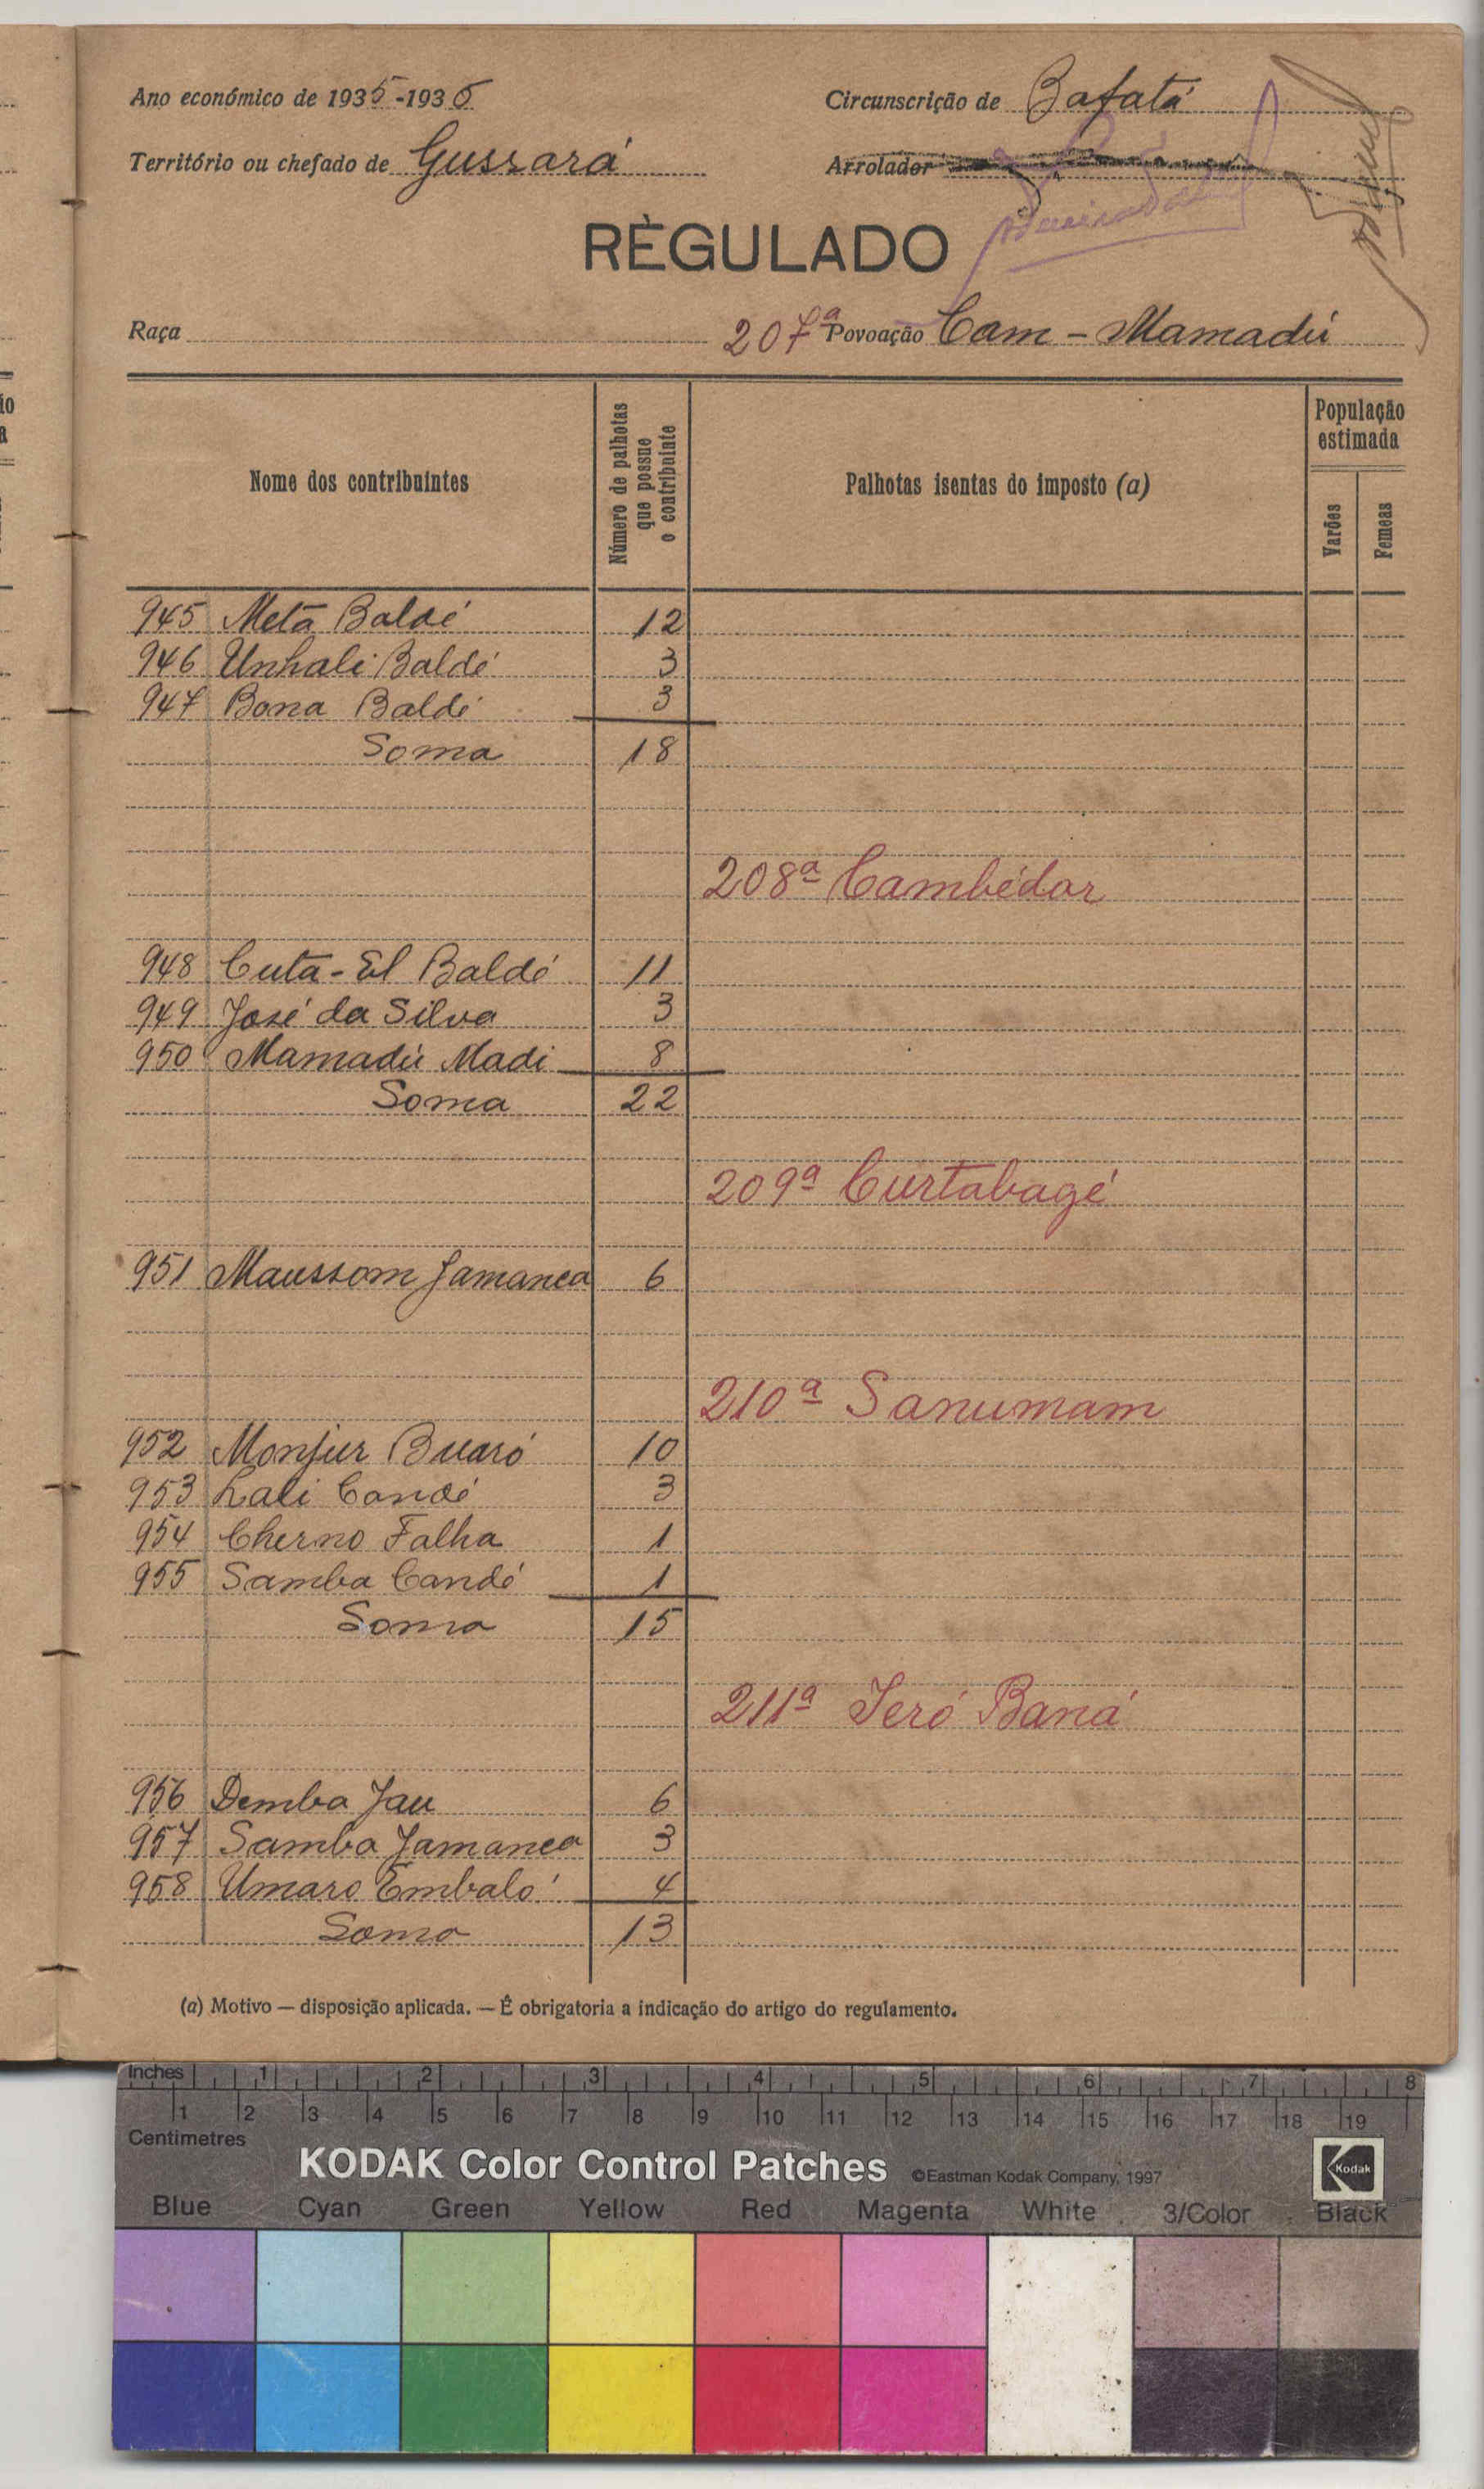 Ano económico de 1935-1936
Circunscrição de Bafatá
Território ou chefado de Gussará
Arrolador
REGULADO
Raça
207ª Povoação Cam-Mamadú
Nome dos contribuintes
Número de palhotas que possue o contribuinte
Palhotas isentas do imposto (a)
População estimada
Varões
Femeas
945 Metá Baldé 12
946 Unhali Baldé 3
947 Bona Baldé 3
Soma 18
208ª Cambédor
948 Cuta-El Baldé 11
949 José da Silva 3
950 Mamadú Madi 8
Soma 22
209ª Curtabagé
951 Maussom Jamanca 6
210ª Sanumam
952 Monjur Buaró 10
953 Lali Candé 3
954 Cherno Falha 1
955 Samba Candé 1
Soma 15
211ª Seró Baná
956 Demba Jau 6
957 Samba Jamanca 3
958 Umaro Embaló 4
Soma 13
(a) Motivo — disposição aplicada. — É obrigatoria a indicação do artigo do regulamento.
Inches 1 2 3 4 5 6 7 8
1 2 3 4 5 6 7 8 9 10 11 12 13 14 15 16 17 18 19
Centimetres
KODAK Color Control Patches ©Eastman Kodak Company, 1997 Kodak
Blue Cyan Green Yellow Red Magenta White 3/Color Black